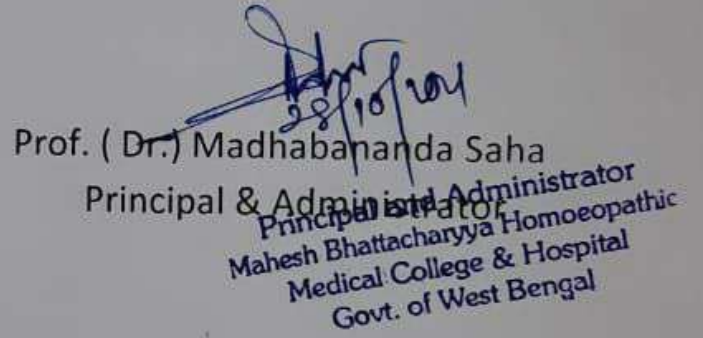 28/10/2021
Prof. ( Dr.) Madhabananda Saha
Principal & Administrator
Principal and Administrator
Mahesh Bhattacharyya Homoeopathic
Medical College & Hospital
Govt. of West Bengal